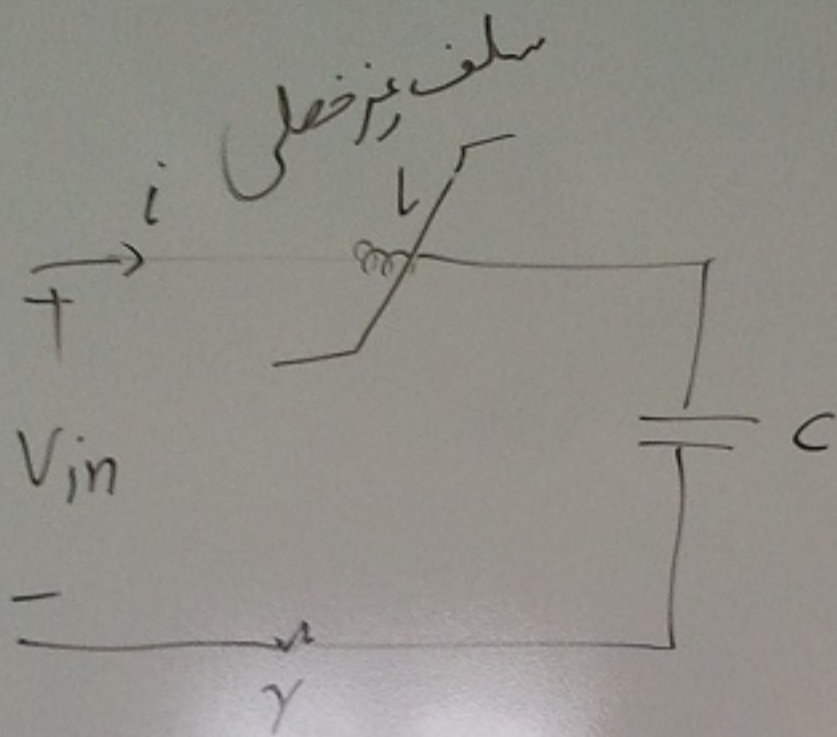 سلف غیرخطی
i
L
+
Vin
C
−
r